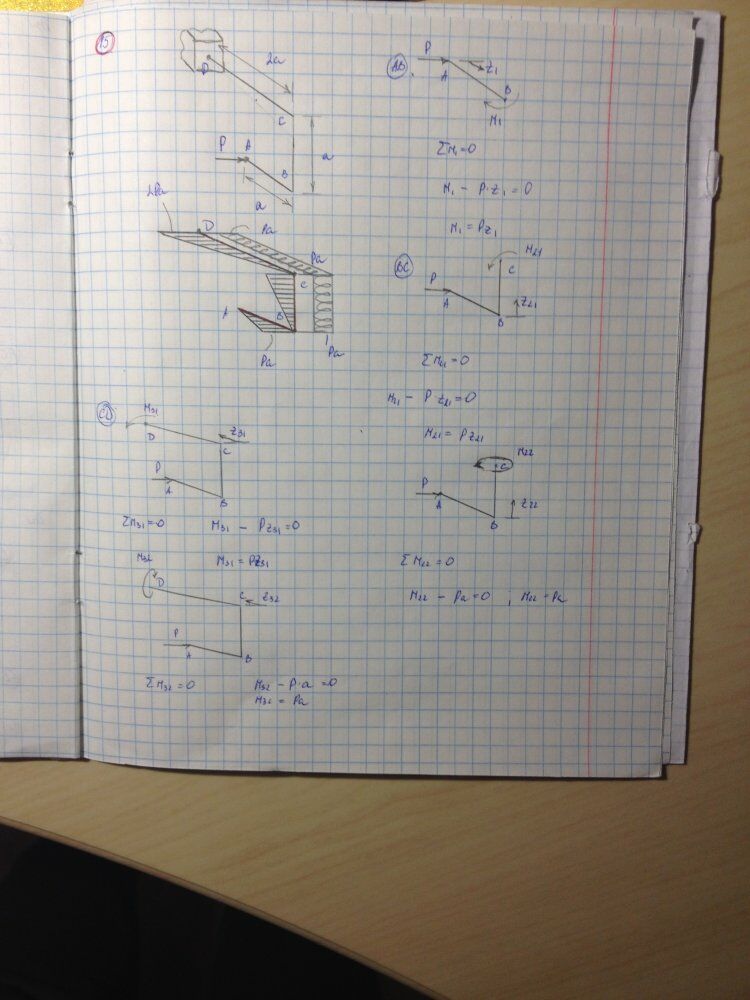 15
D
2a
C
P A
B
a
a
2Pa
D
Pa
Pa
C
A
B
Pa
Pa
AB
P
A
z₁
B
M₁
ΣM₁=0
M₁ - P·z₁ = 0
M₁ = Pz₁
BC
M₂₁
C
P
A
z₂₁
B
ΣM₂₁=0
M₂₁ - P·z₂₁ = 0
M₂₁ = Pz₂₁
M₂₂
C
P
A
z₂₂
B
ΣM₂₂=0
M₂₂ - Pa = 0 ; M₂₂ = Pa
CD
M₃₁
D
z₃₁
C
P
A
B
ΣM₃₁=0 M₃₁ - Pz₃₁=0
M₃₁ = Pz₃₁
M₃₂
D
C z₃₂
P
A
B
ΣM₃₂=0 M₃₂ - P·a = 0
M₃₂ = Pa